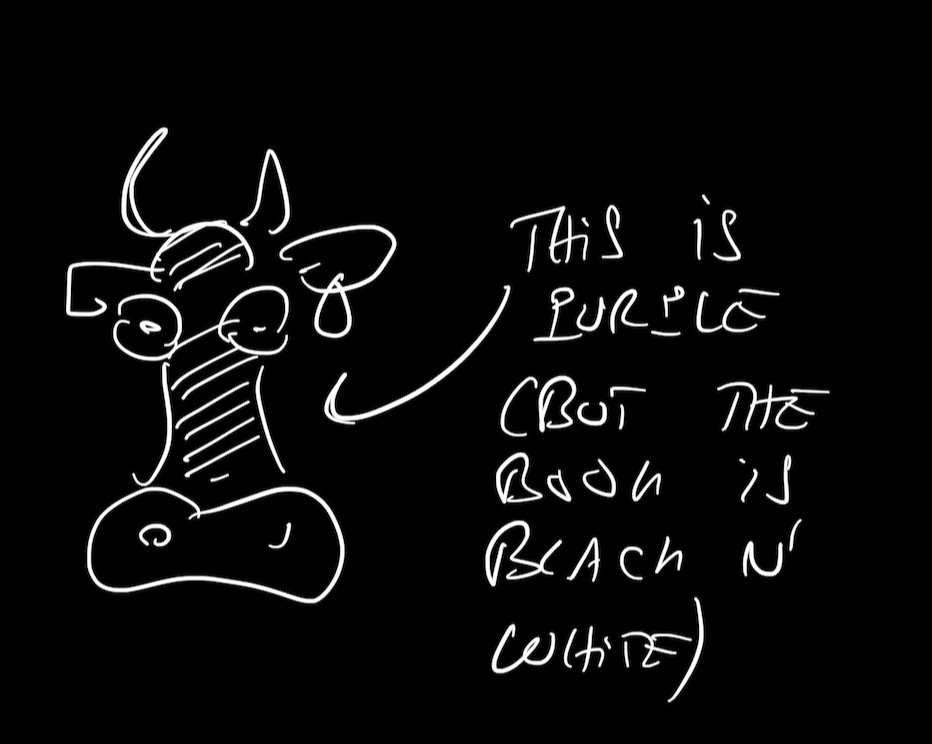 THIS IS
PURPLE
(BUT THE
BOOK IS
BLACK N'
WHITE)